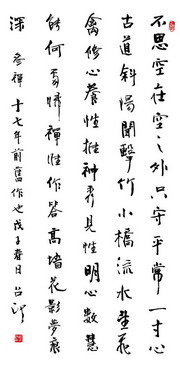 不思空在空之外只守平常一寸心
古道斜陽聞擊竹小橋流水
禽修心養性推神秀見性明心數慧
能何歸禪作答高墻花影夢痕
深 參禪 十七年前舊作也戊子春日呂